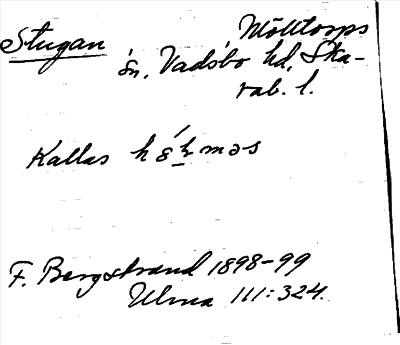 Stugan Mölltorps
sn, Vadsbo hd, Ska-
rab. l.
Kallas
F. Bergstrand 1898-99
Ulma 111:324.